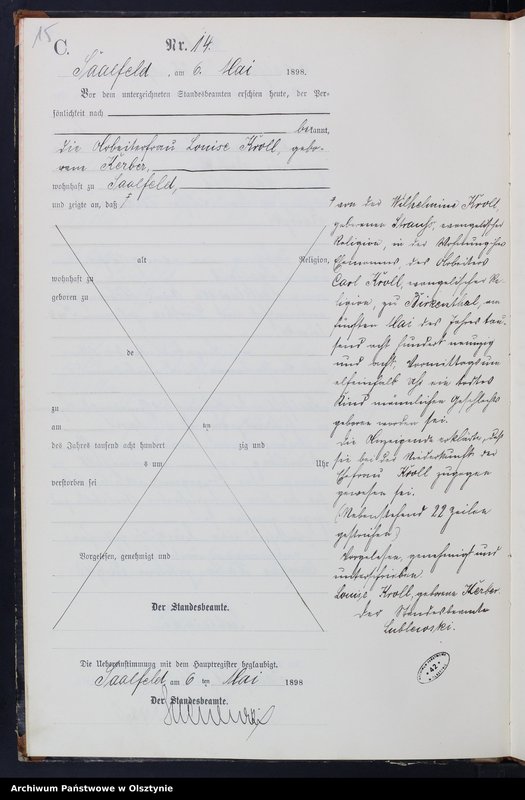 15
C.
Nr. 14.
Saalfeld, am 6. Mai 1898.
Vor dem unterzeichneten Standesbeamten erschien heute, der Per-
sönlichkeit nach
bekannt,
die Arbeiterfrau Louise Kroll, gebo-
rene Kerber,
wohnhaft zu Saalfeld,
und zeigte an, daß
alt Religion,
wohnhaft zu
geboren zu
de
zu
am ten
des Jahres tausend acht hundert zig und
s um Uhr
verstorben sei
Vorgelesen, genehmigt und
Der Standesbeamte.
von der Wilhelmine Kroll
geborenen Strauß, evangelischer
Religion, in der Wohnung ihres
Ehemannes, des Arbeiters
Carl Kroll, evangelischer Re-
ligion, zu Birkenthal, am
fünften Mai des Jahres tau-
send acht hundert neunzig
und acht, Vormittags um
elfeinhalb Uhr ein todtes
Kind männlichen Geschlechts
geboren worden sei.
Die Anzeigende erklärte, daß
sie bei der Niederkunft der
Ehefrau Kroll zugegen
gewesen sei.
(Nebenstehend 22 Zeilen
gestrichen)
Vorgelesen, genehmigt und
unterschrieben.
Louise Kroll, geborene Kerber.
Der Standesbeamte
Lublewski.
Die Uebereinstimmung mit dem Hauptregister beglaubigt.
Saalfeld, am 6 ten Mai 1898
Der Standesbeamte.
42
Archiwum Państwowe w Olsztynie